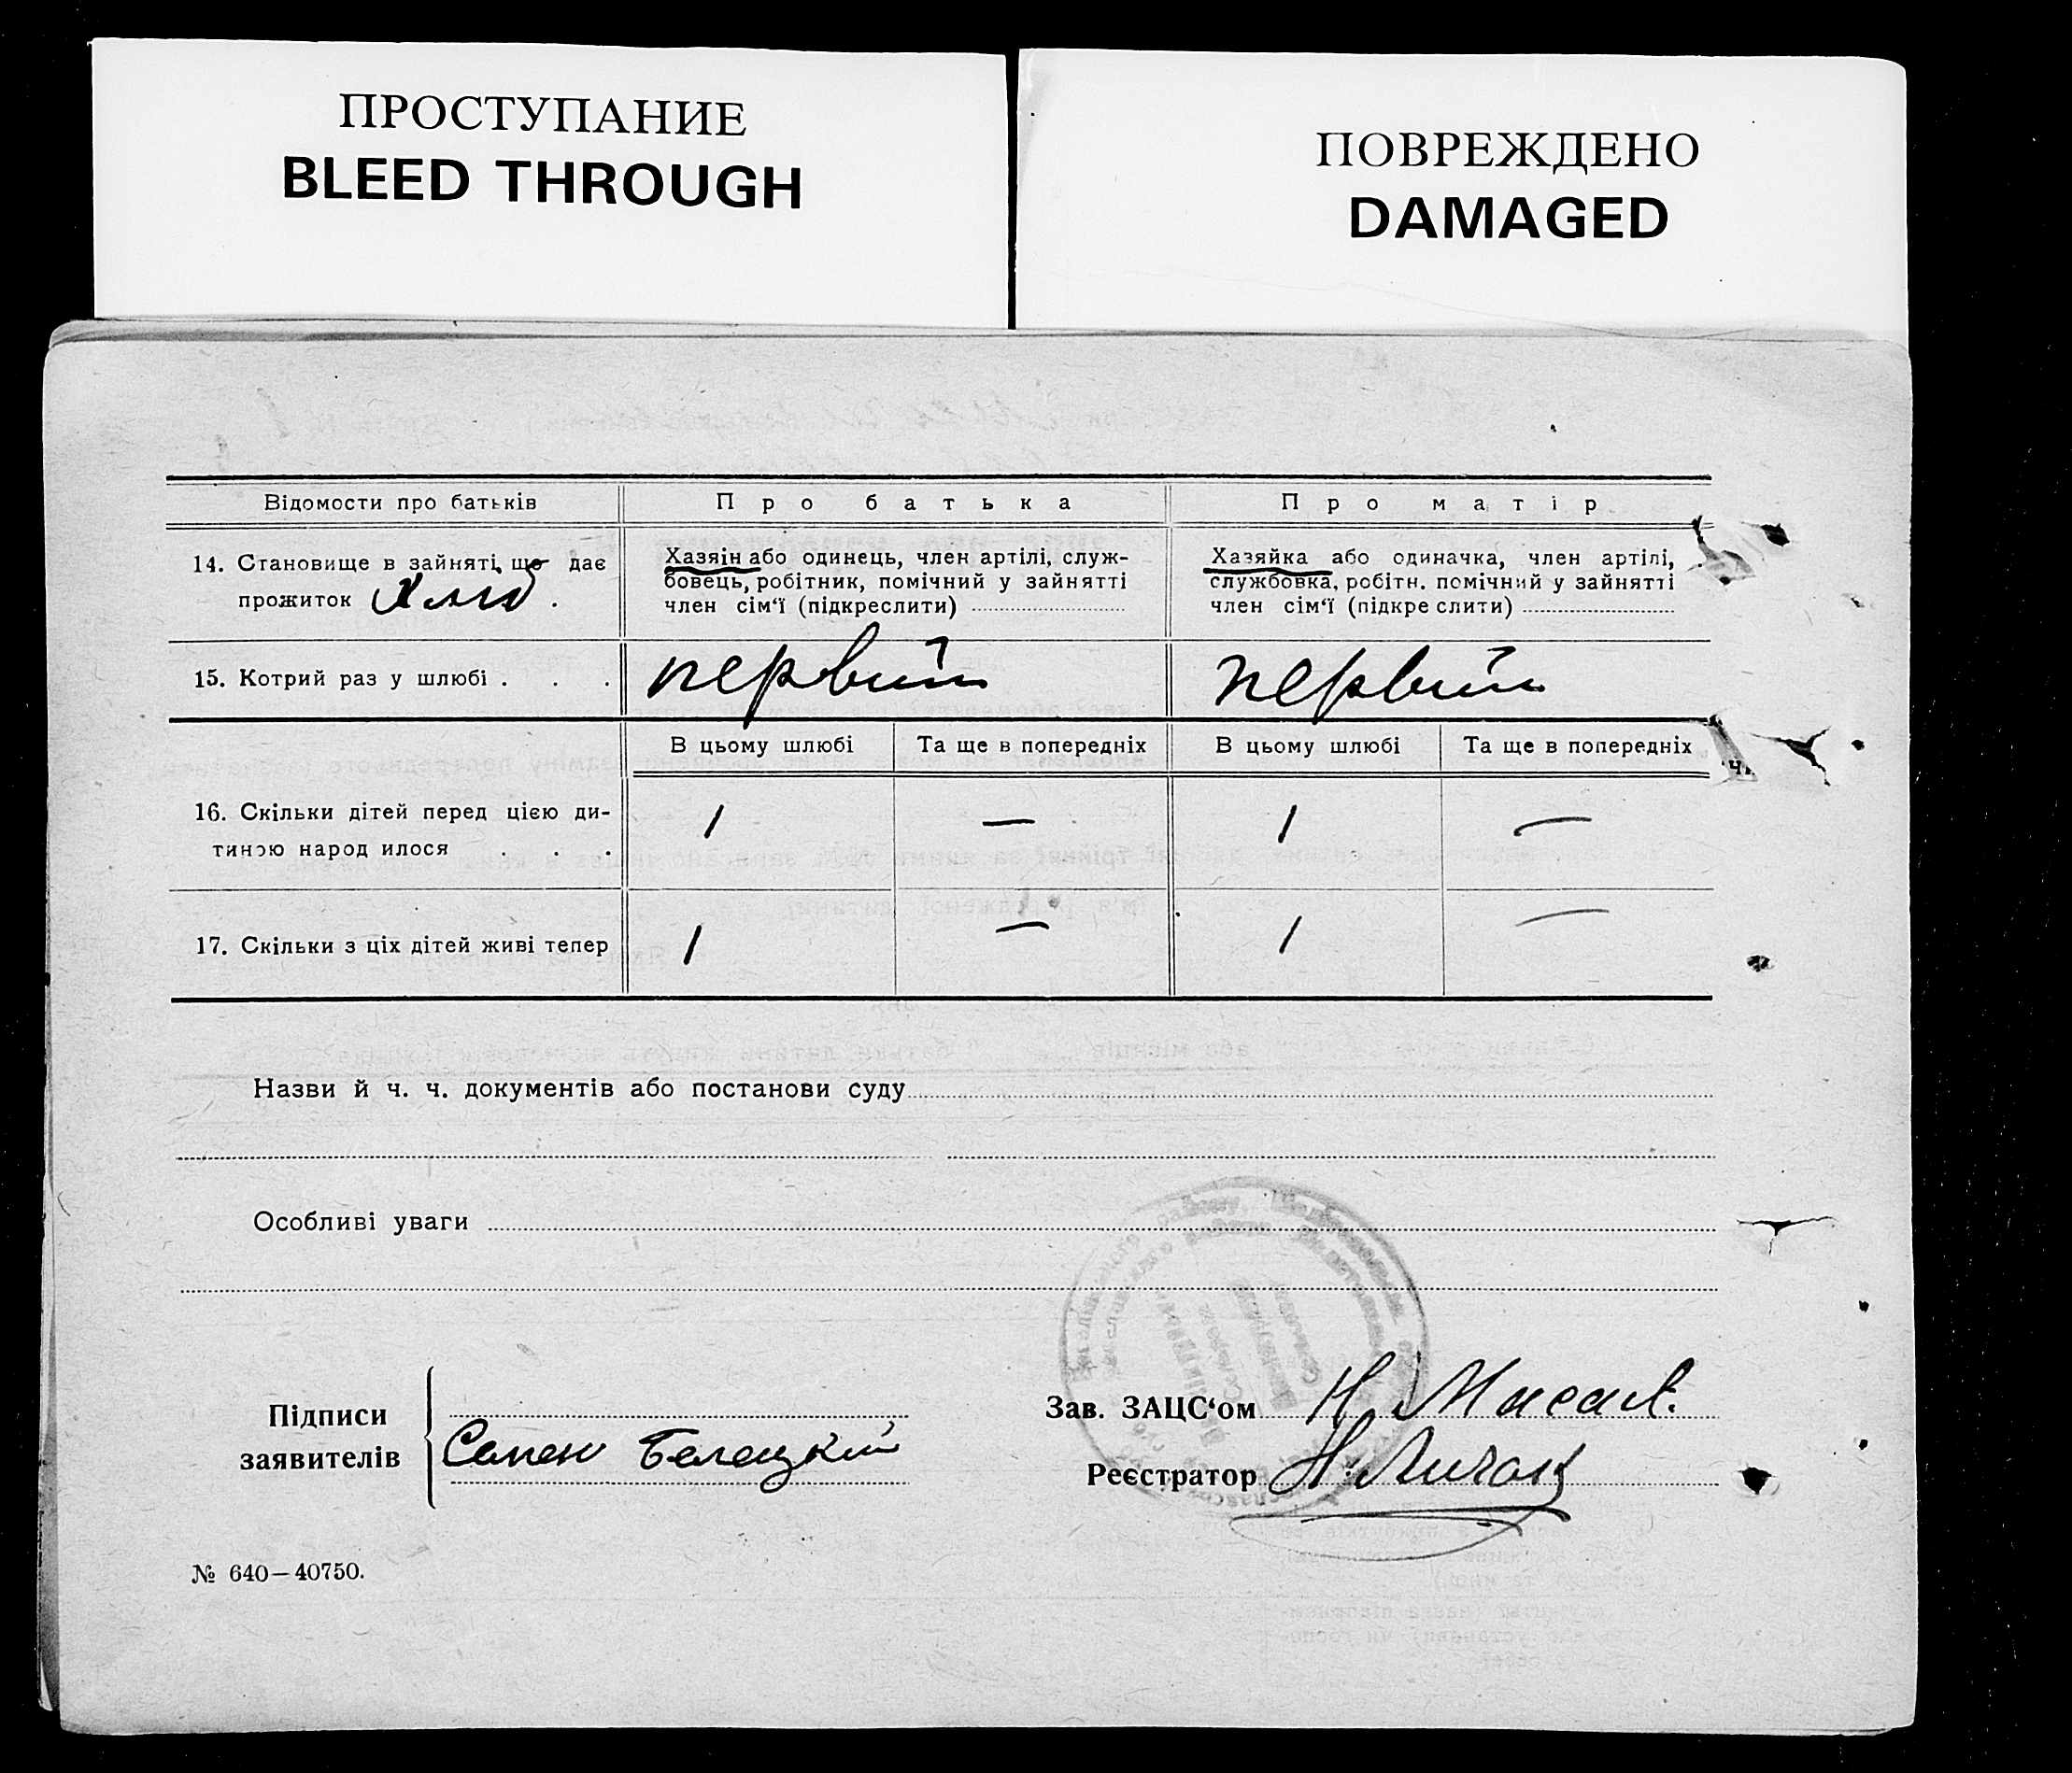 ПРОСТУПАНИЕ
BLEED THROUGH
ПОВРЕЖДЕНО
DAMAGED
Відомости про батьків
Про батька
Про матір
14. Становище в зайняті, що дає
прожиток Хліб.
Хазяін або одинець, член артілі, служ-
бовець, робітник, помічний у зайнятті
член сім‘ї (підкреслити)
Хазяйка або одиначка, член артілі,
службовка, робітн. помічний у зайнятті
член сім‘ї (підкре слити)
15. Котрий раз у шлюбі . . .
первий
первий
В цьому шлюбі
Та ще в попередніх
В цьому шлюбі
Та ще в попередніх
16. Скільки дітей перед цією ди-
тиною народ илося . . .
1 — 1 —
17. Скільки з ціх дітей живі тепер
1 — 1 —
Назви й ч. ч. документів або постанови суду
Особливі уваги
Підписи
заявителів
Семен Белецкий
Зав. ЗАЦС‘ом Н.
Реєстратор Н.
№ 640—40750.